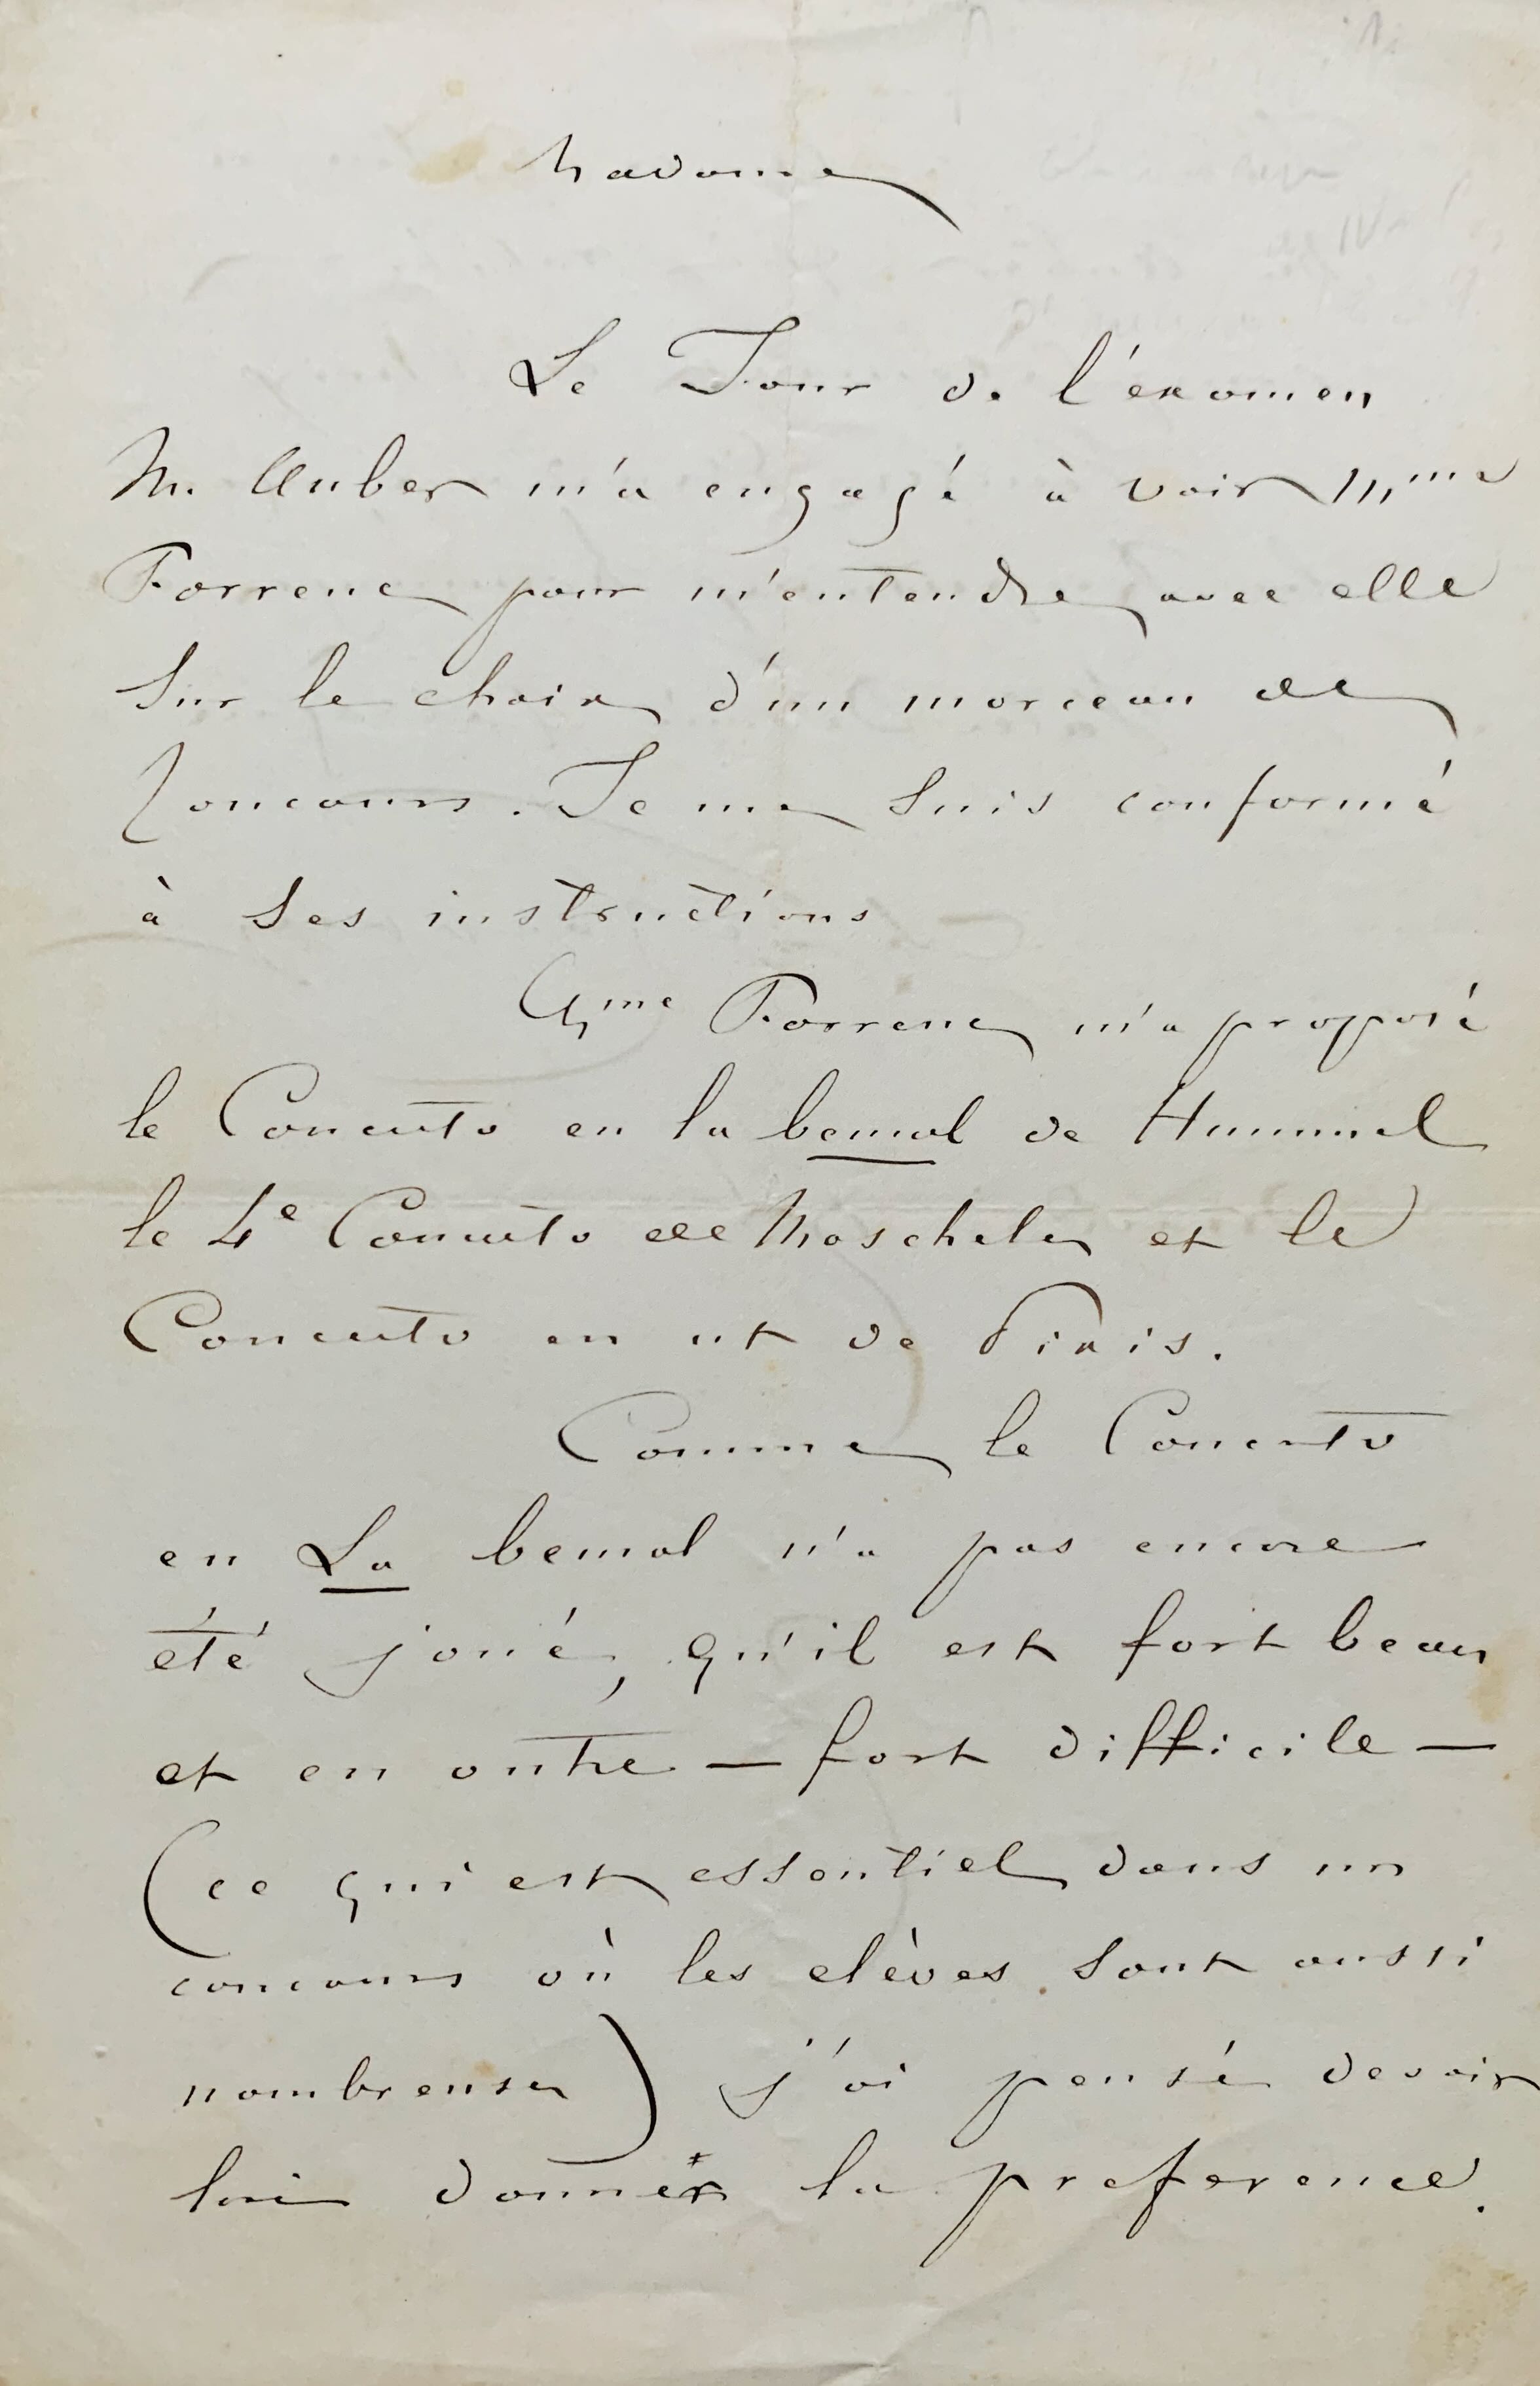 Madame
Le Jour de l'examen
M. Auber m'a engagé à voir Mme
Farrenc pour m'entendre avec elle
sur le choix d'un morceau de
Concours. Je me suis conformé
à ses instructions
Mme Farrenc m'a proposé
le Concerto en la bemol de Hummel
le 4e Concerto de Moscheles et le
Concerto en ut de
Comme le Concerto
en La bemol n'a pas encore
été joué, qu'il est fort beau
et en outre — fort difficile —
(ce qui est essentiel dans un
concours où les elèves sont aussi
nombreuses) j'ai pensé devoir
lui donner la preference.